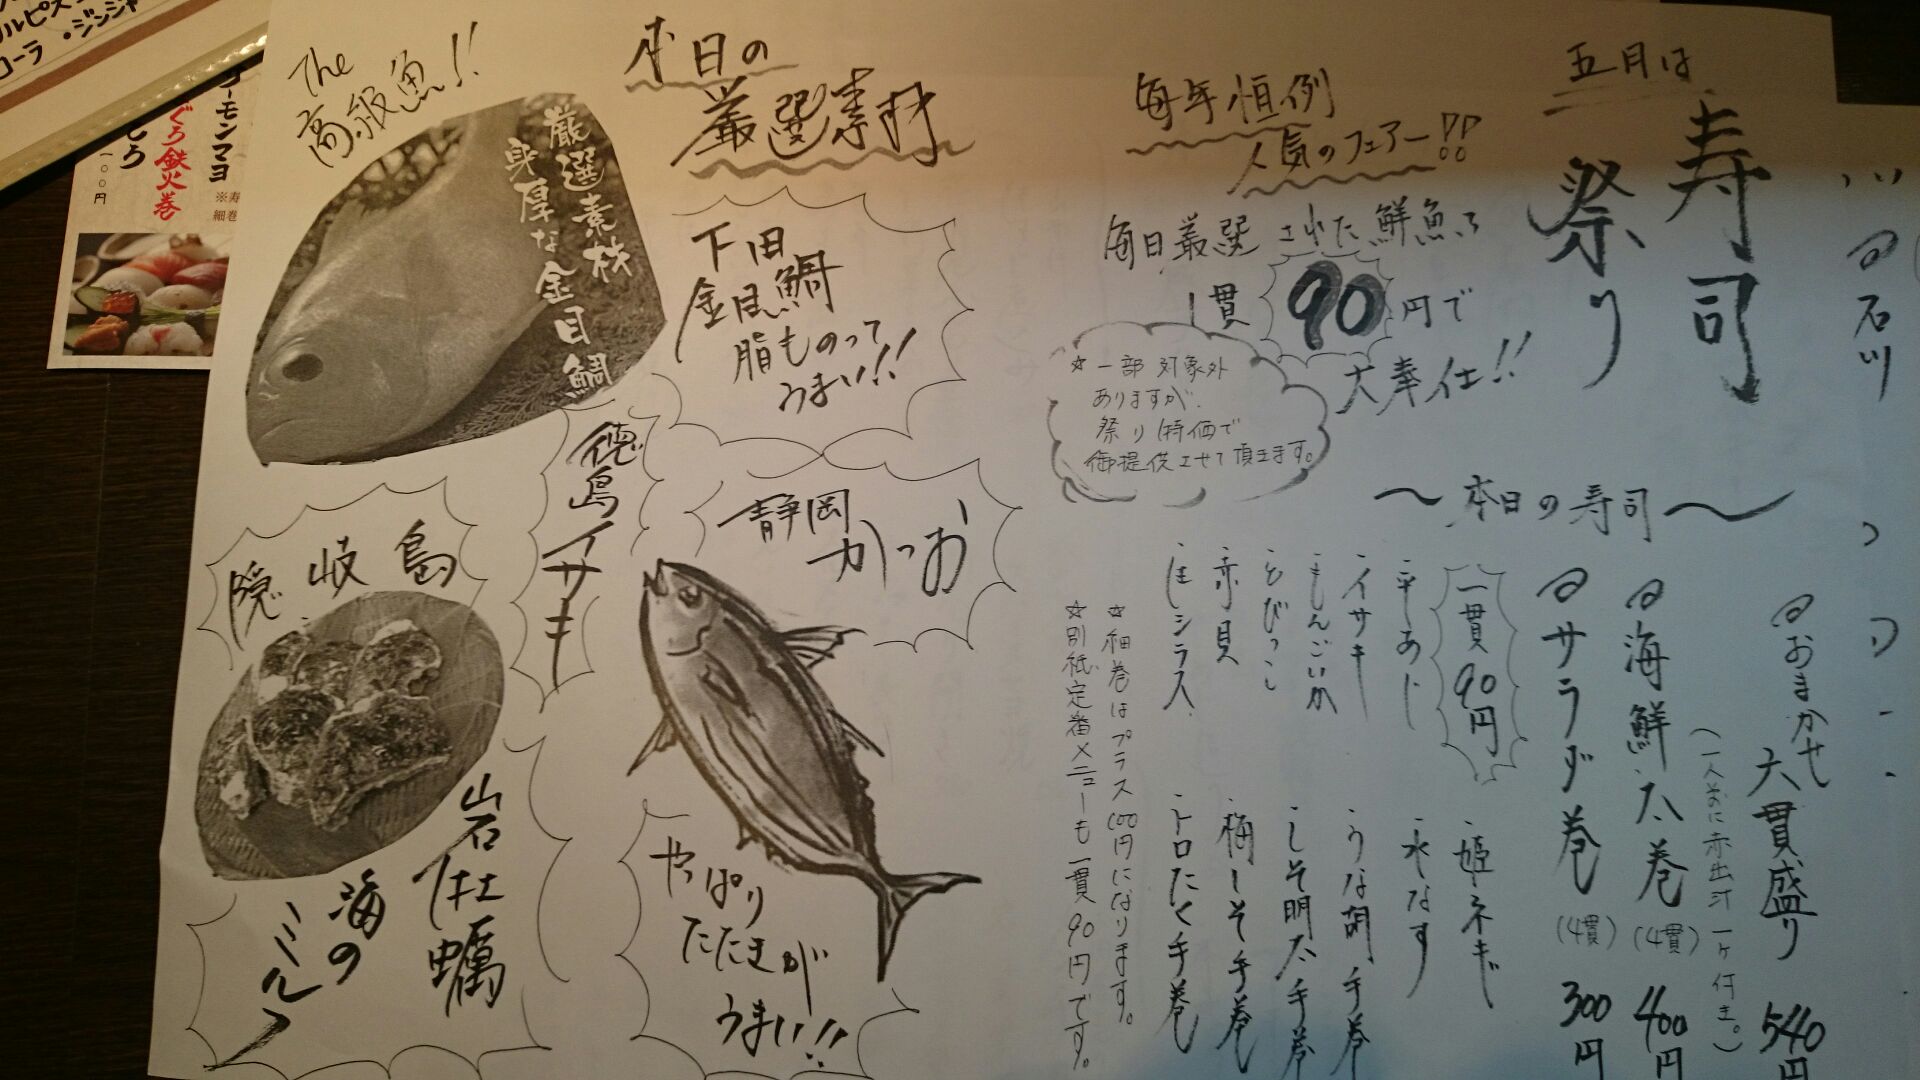 五月は
寿司
祭り
毎年恒例
人気のフェアー!!
毎日厳選された鮮魚を
1貫90円で
大奉仕!!
☆一部対象外
ありますが、
祭り特価で
御提供させて頂きます。
〜本日の寿司〜
おまかせ
六貫盛り 540円
(一人前に赤出汁一ヶ付き。)
海鮮太巻(4貫) 400円
サラダ巻(4貫) 300円
一貫90円
平あじ
イサキ
もんごいか
とびっこ
赤貝
生シラス
姫ネギ
水なす
うな胡手巻
しそ明太手巻
梅しそ手巻
トロたく手巻
☆細巻はプラス100円になります。
☆別紙定番メニューも一貫90円です。
本日の
厳選素材
The
高級魚!!
厳選素材
身厚な金目鯛
下田
金目鯛
脂ものって
うまい!!
徳島イサキ
静岡
かつお
やっぱり
たたきが
うまい!!
隠岐島
岩牡蠣
海の
ミルク
石川
ーモンマヨ
ぐろ鉄火巻
しろ
一〇〇円
※寿
細巻
ルピス
コーラ・ジンジャ